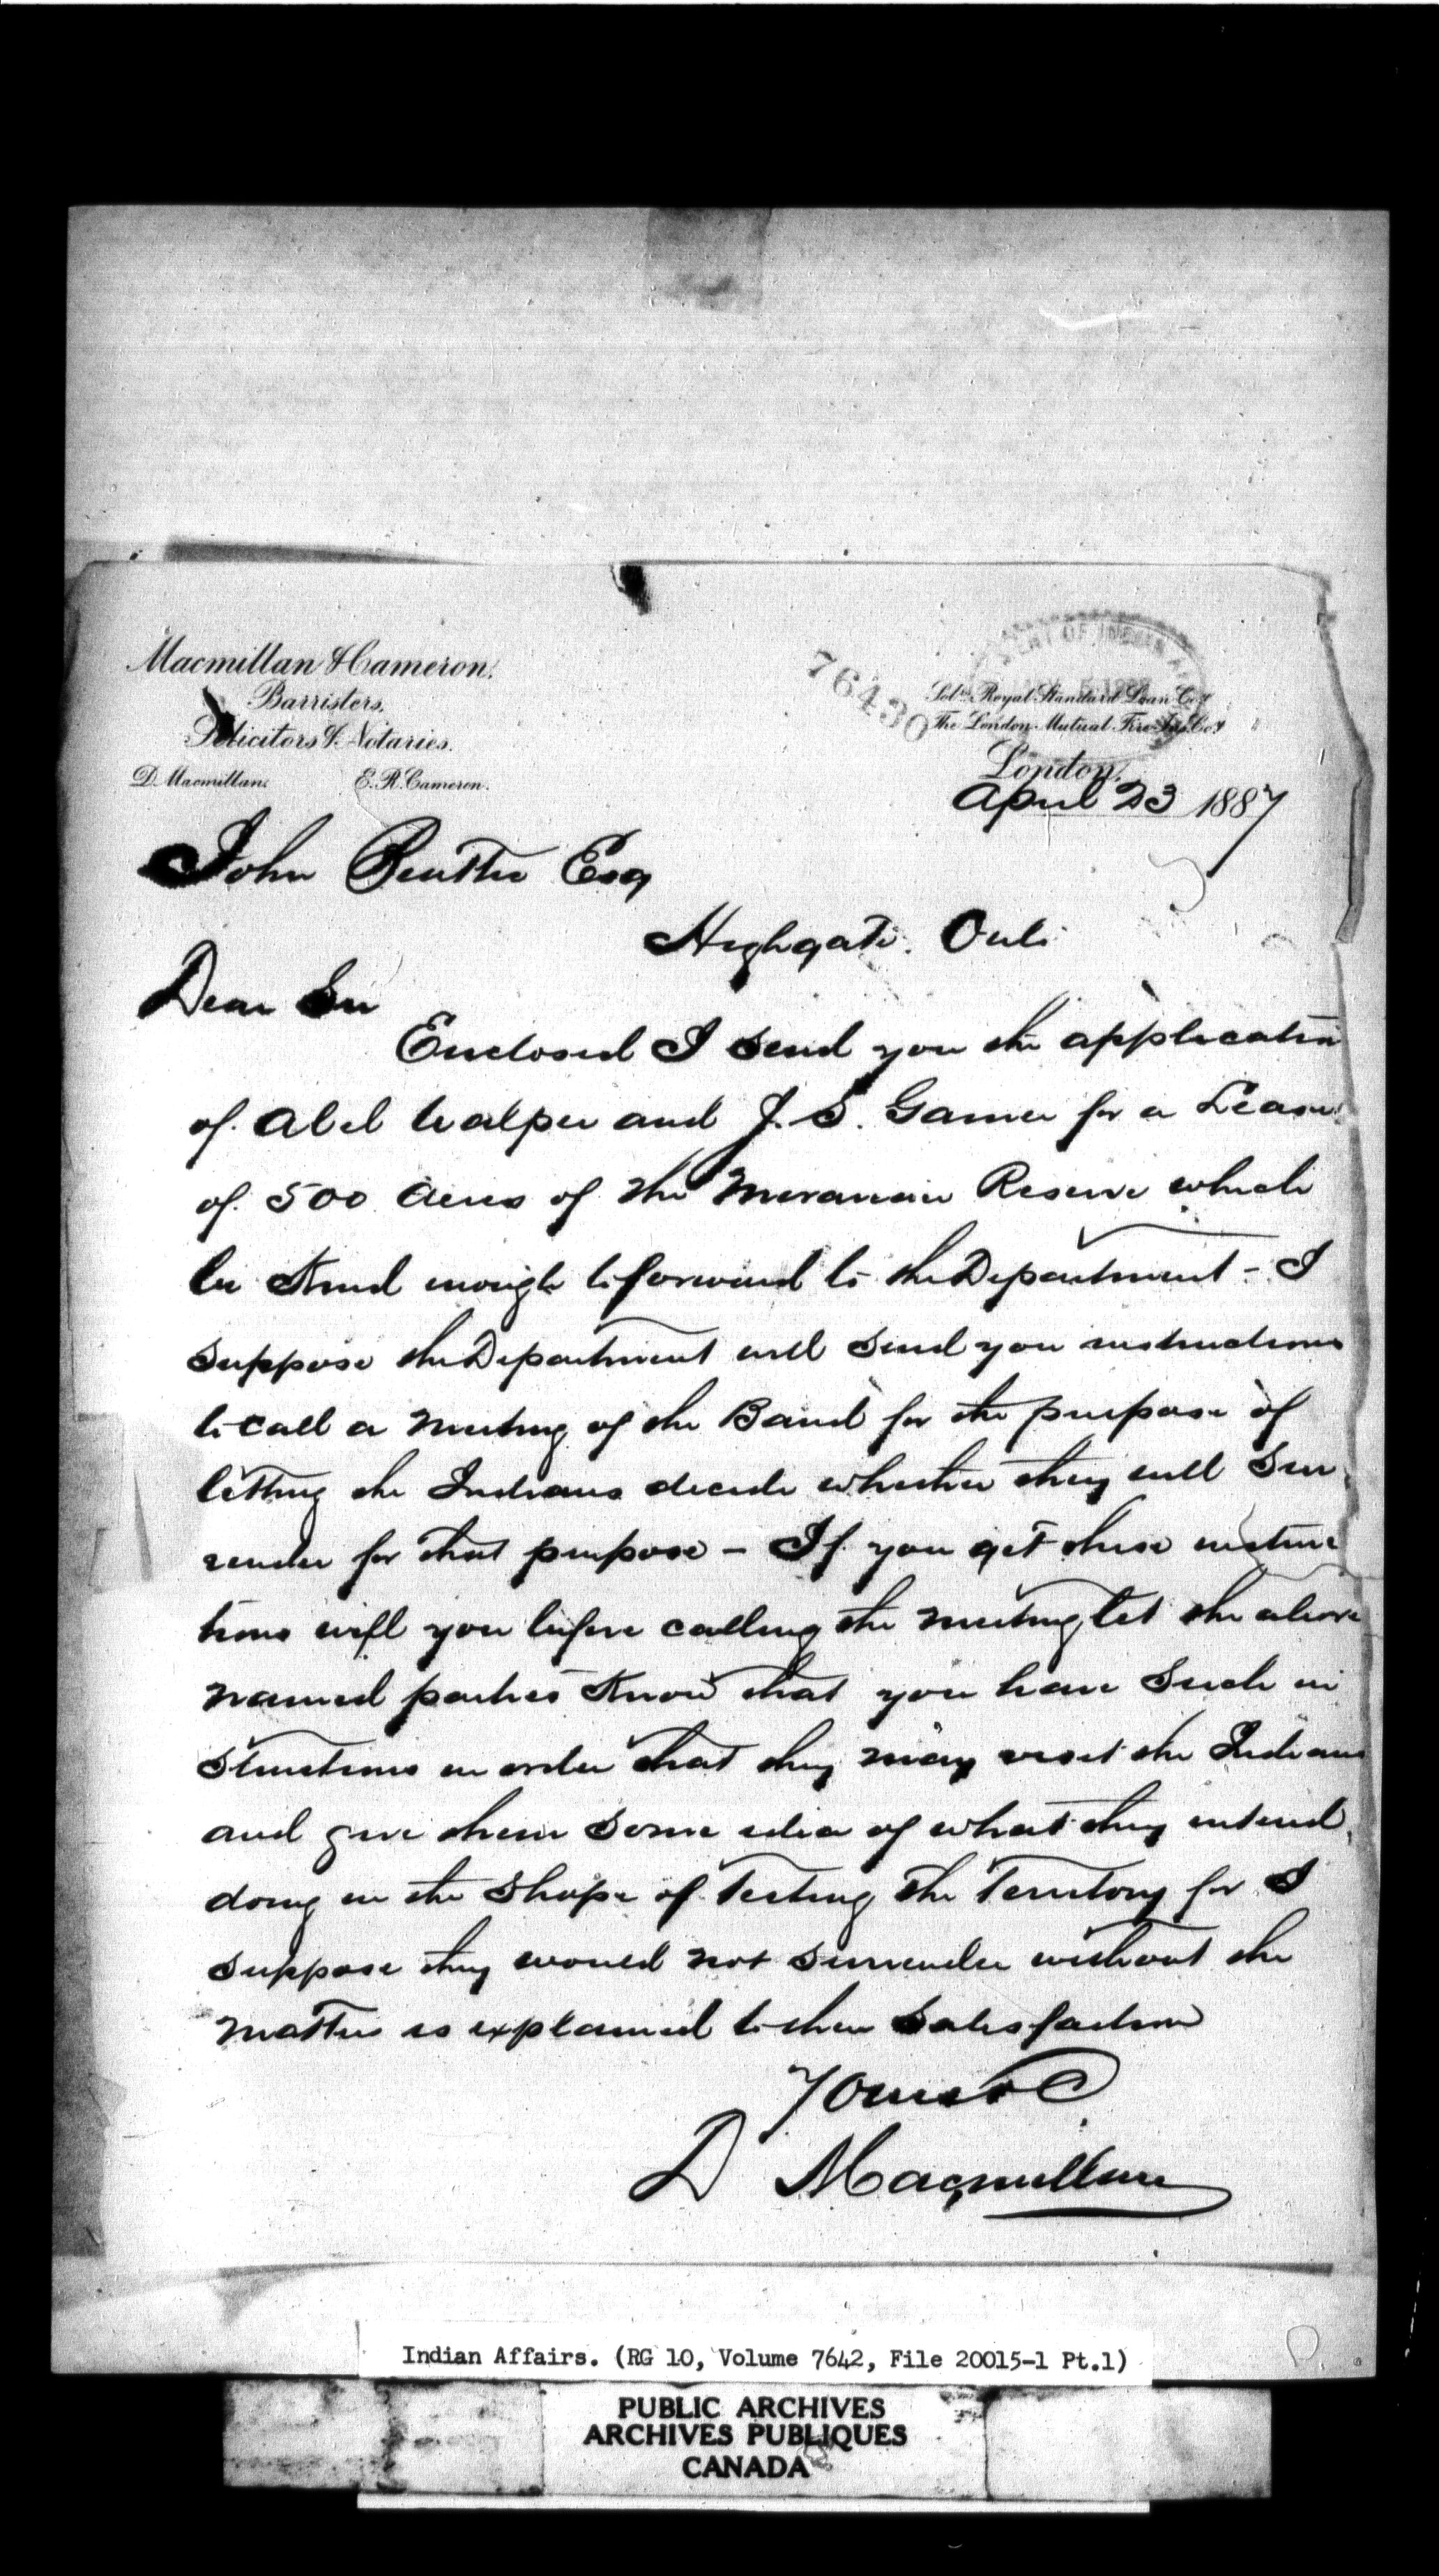 Macmillan & Cameron.
Barristers,
Solicitors & Notaries.
D. Macmillan. E. R. Cameron.
76430
Sol^rs Royal Standard Loan Co'y
The London Mutual Fire Ins. Co'y
London,
April 23 1887
John Beattie Esq
Highgate. Ont.
Dear Sir
Enclosed I send you the application
of Abel Walper and J. S. for a Lease
of 500 Acres of the Moravian Reserve which
be Kind enough to forward to the Department - I
suppose the Department will send you instructions
to call a meeting of the Band for the purpose of
letting the Indians decide whether they will Sur
render for that purpose - If you get these instruc
tions will you before calling the meeting let the above
named parties Know that you have Such in
structions in order that they may visit the Indians
and give them some idea of what they intend
doing in the Shape of Testing the Territory for I
suppose they would not surrender without the
matter is explained to their Satisfaction
Yours &c
D Macmillan
Indian Affairs. (RG 10, Volume 7642, File 20015-1 Pt.1)
PUBLIC ARCHIVES
ARCHIVES PUBLIQUES
CANADA